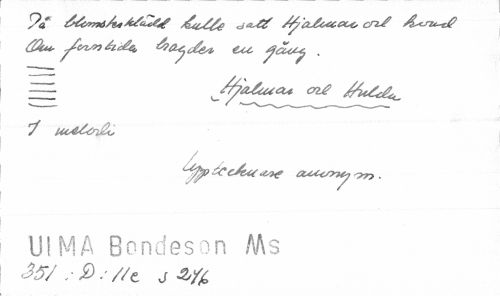 På blomsterklädd kulle satt Hjalmar och kvad
Om forntida bragder en gång.
Hjalmar och Hulda
1 melodi
Upptecknare anonym.
ULMA Bondeson Ms
351 : D : 11c s 276